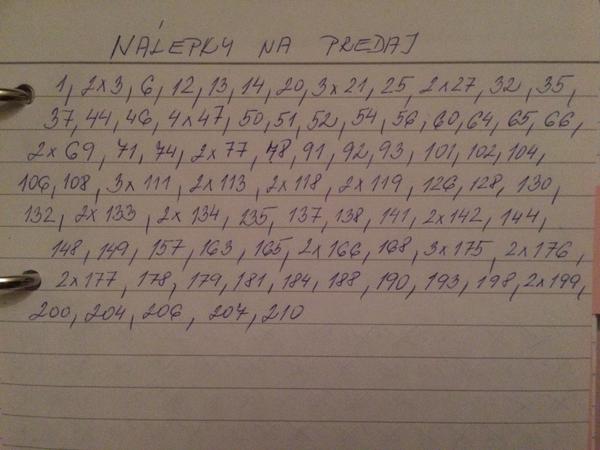 NÁLEPKY NA PREDAJ
1, 2x3, 6, 12, 13, 14, 20, 3x21, 25, 2x27, 32, 35,
37, 44, 46, 4x47, 50, 51, 52, 54, 56, 60, 64, 65, 66,
2x69, 71, 74, 2x77, 78, 91, 92, 93, 101, 102, 104,
106, 108, 3x111, 2x113, 2x118, 2x119, 126, 128, 130,
132, 2x133, 2x134, 135, 137, 138, 141, 2x142, 144,
148, 149, 157, 163, 165, 2x166, 168, 3x175, 2x176,
2x177, 178, 179, 181, 184, 188, 190, 193, 198, 2x199,
200, 204, 206, 207, 210